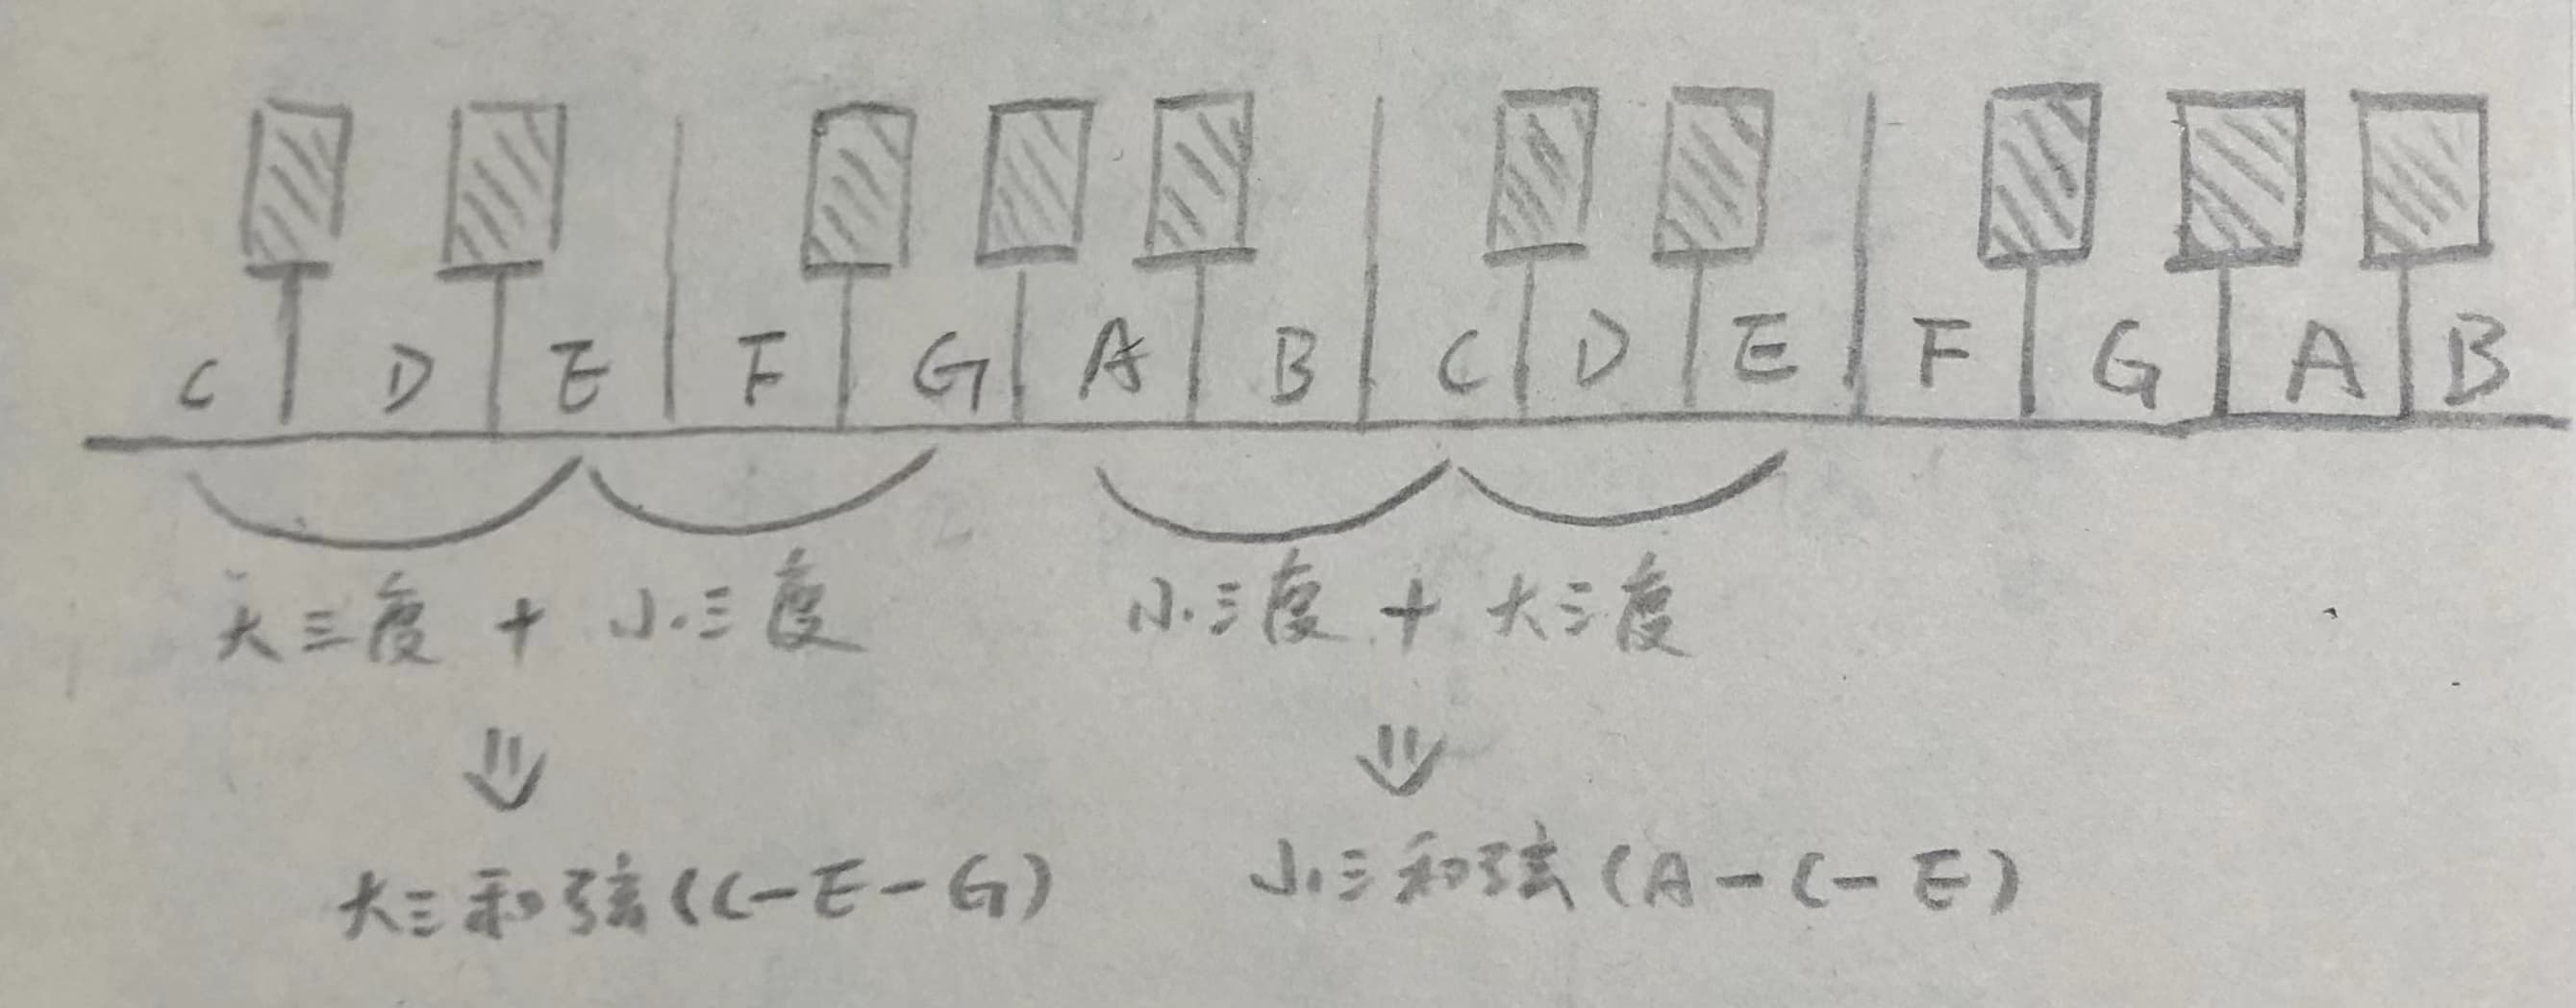 C D E F G A B C D E F G A B
大三度 + 小三度 小三度 + 大三度
⇓ ⇓
大三和弦(C-E-G) 小三和弦(A-C-E)